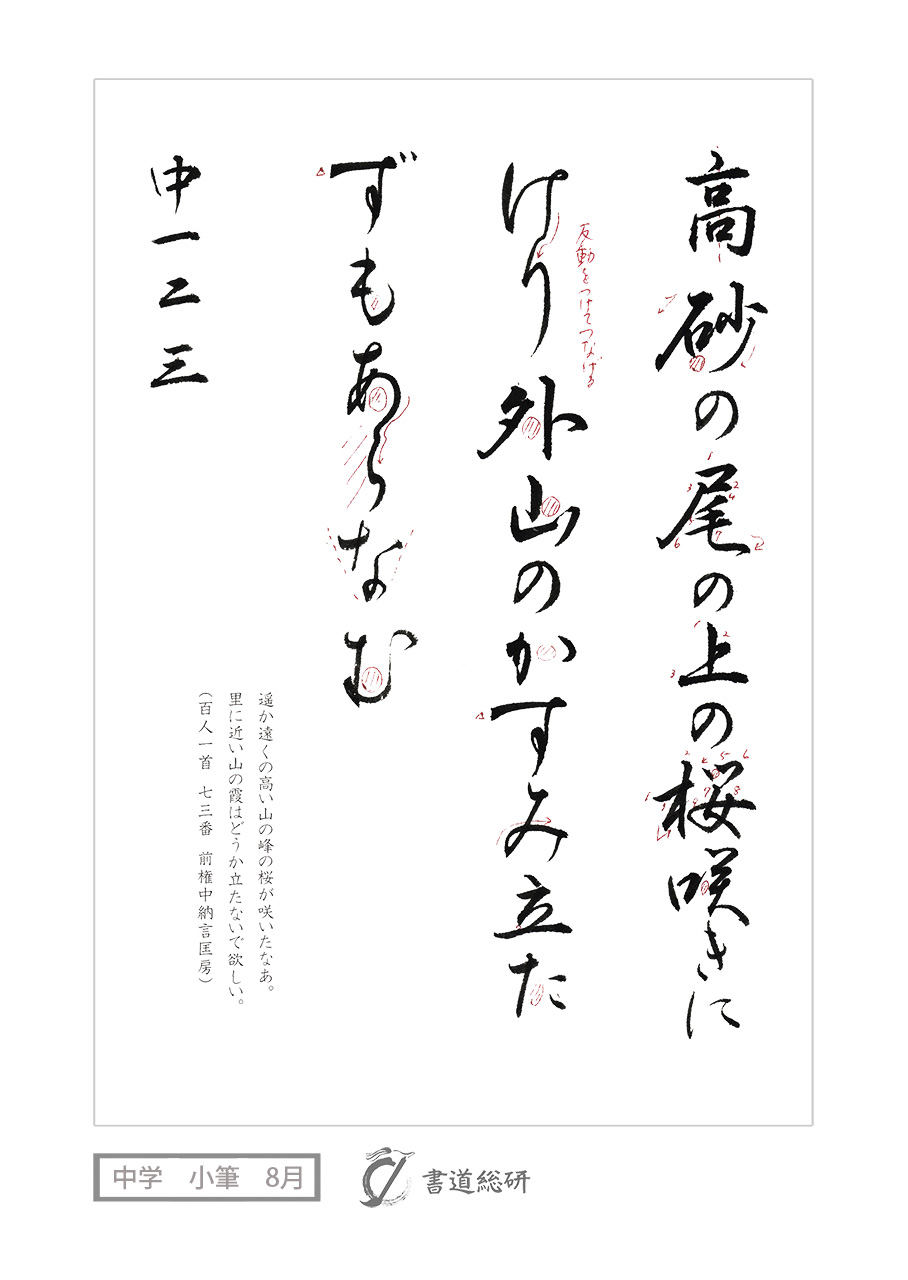 高砂の尾の上の桜咲きに
けり外山のかすみ立た
ずもあらなむ
中一二三
反動をつけてつなげる
遥か遠くの高い山の峰の桜が咲いたなあ。
里に近い山の霞はどうか立たないで欲しい。
（百人一首　七三番　前権中納言匡房）
中学　小筆　8月
書道総研